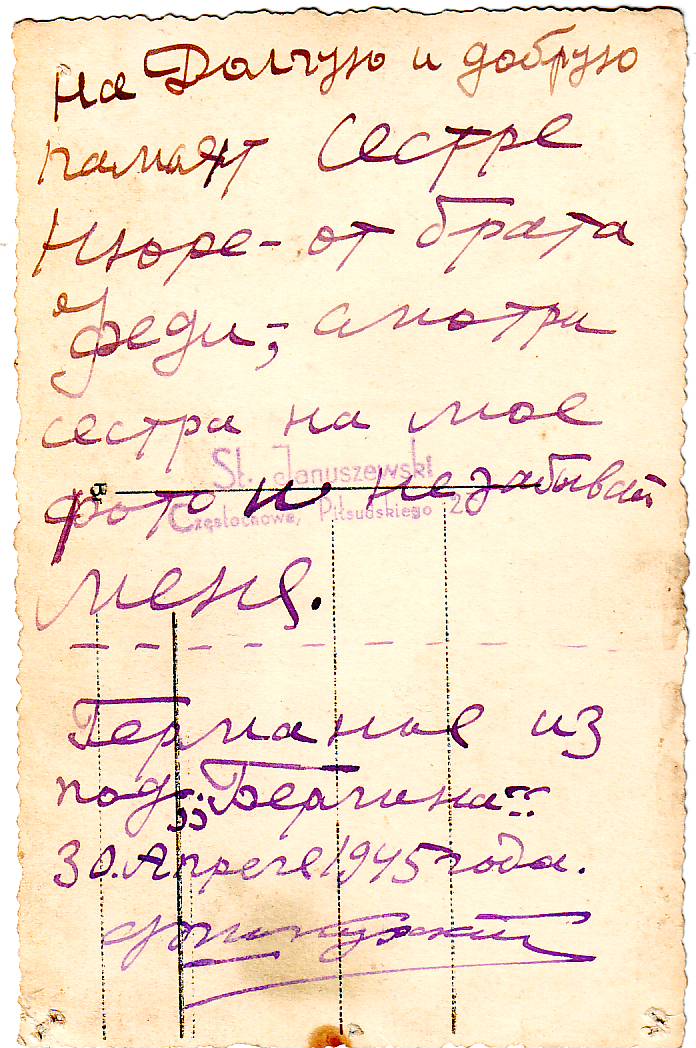 На Долгую и добрую
памят Сестре
Нюре - от брата
Феди; смотри
сестра на мое
St. Januszewski
фото и незабывай
Częstochowa, Piłsudskiego 2
меня.
Германие из
под „Берлина“
30. Апреле 1945 года.